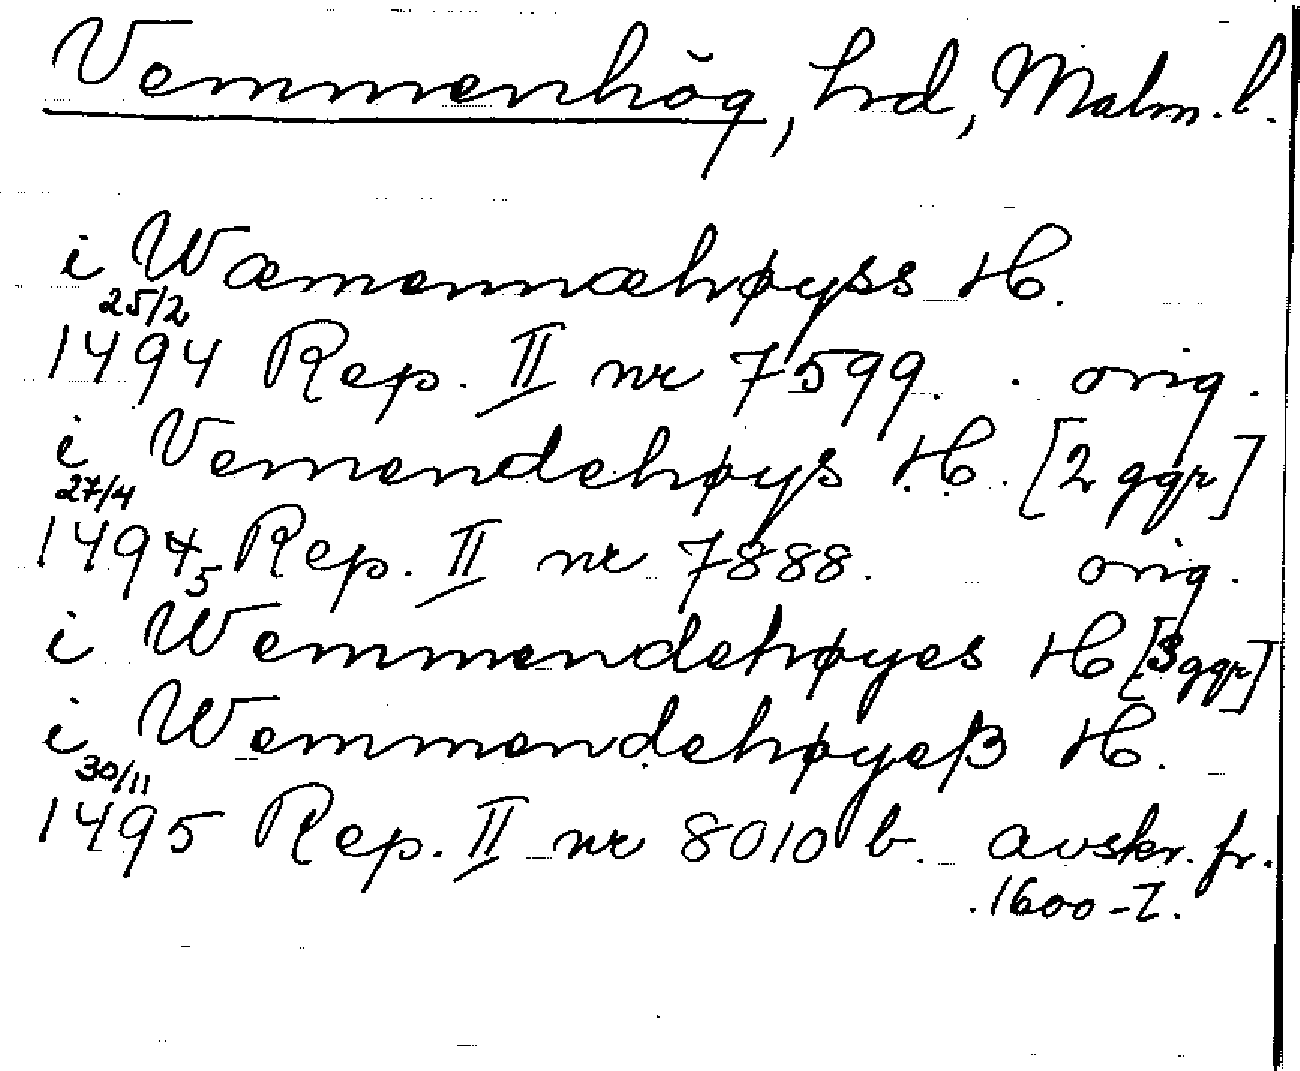 Vemmenhög, hrd, Malm. l.
i Wæmennæhøyss H.
25/2
1494 Rep. II nr 7599. orig.
i Vemendehøys H. [2 ggr]
27/4
1494 5 Rep. II nr 7888. orig.
i Wemmendehøyes H [3 ggr]
i Wemmendehøyeß H.
30/11
1495 Rep. II nr 8010 b. avskr. fr.
1600-T.